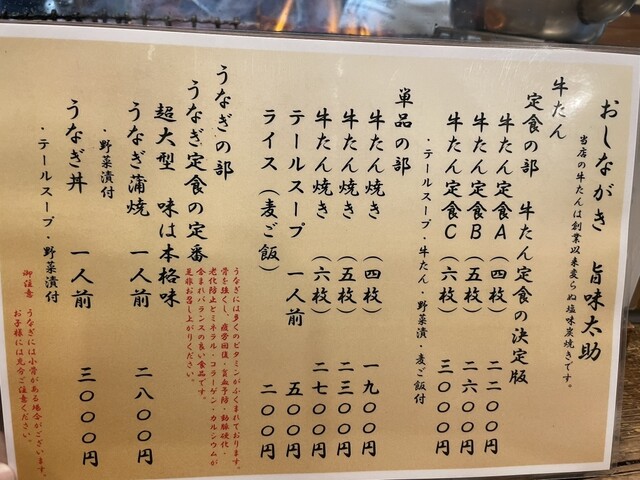 おしながき 旨味太助
当店の牛たんは創業以来変らぬ塩味炭焼きです。
牛たん
定食の部 牛たん定食の決定版
牛たん定食A（四枚） 二二〇〇円
牛たん定食B（五枚） 二六〇〇円
牛たん定食C（六枚） 三〇〇〇円
・テールスープ・牛たん・野菜漬・麦ご飯付
単品の部
牛たん焼き（四枚） 一九〇〇円
牛たん焼き（五枚） 二三〇〇円
牛たん焼き（六枚） 二七〇〇円
テールスープ 一人前 五〇〇円
ライス（麦ご飯） 二〇〇円
うなぎの部
うなぎには多くのビタミンがふくまれております。
骨を強くし、疲労回復・貧血予防・動脈硬化・
老化防止とミネラル・コラーゲン・カルシウムが
含まれバランスの良い食品です。
是非お召し上がりください。
うなぎ定食の定番
超大型 味は本格味
うなぎ蒲焼 一人前 二八〇〇円
・野菜漬付
うなぎ丼 一人前 三〇〇〇円
・テールスープ・野菜漬付
御注意 うなぎには小骨がある場合がございます。
お子様には充分ご注意ください。